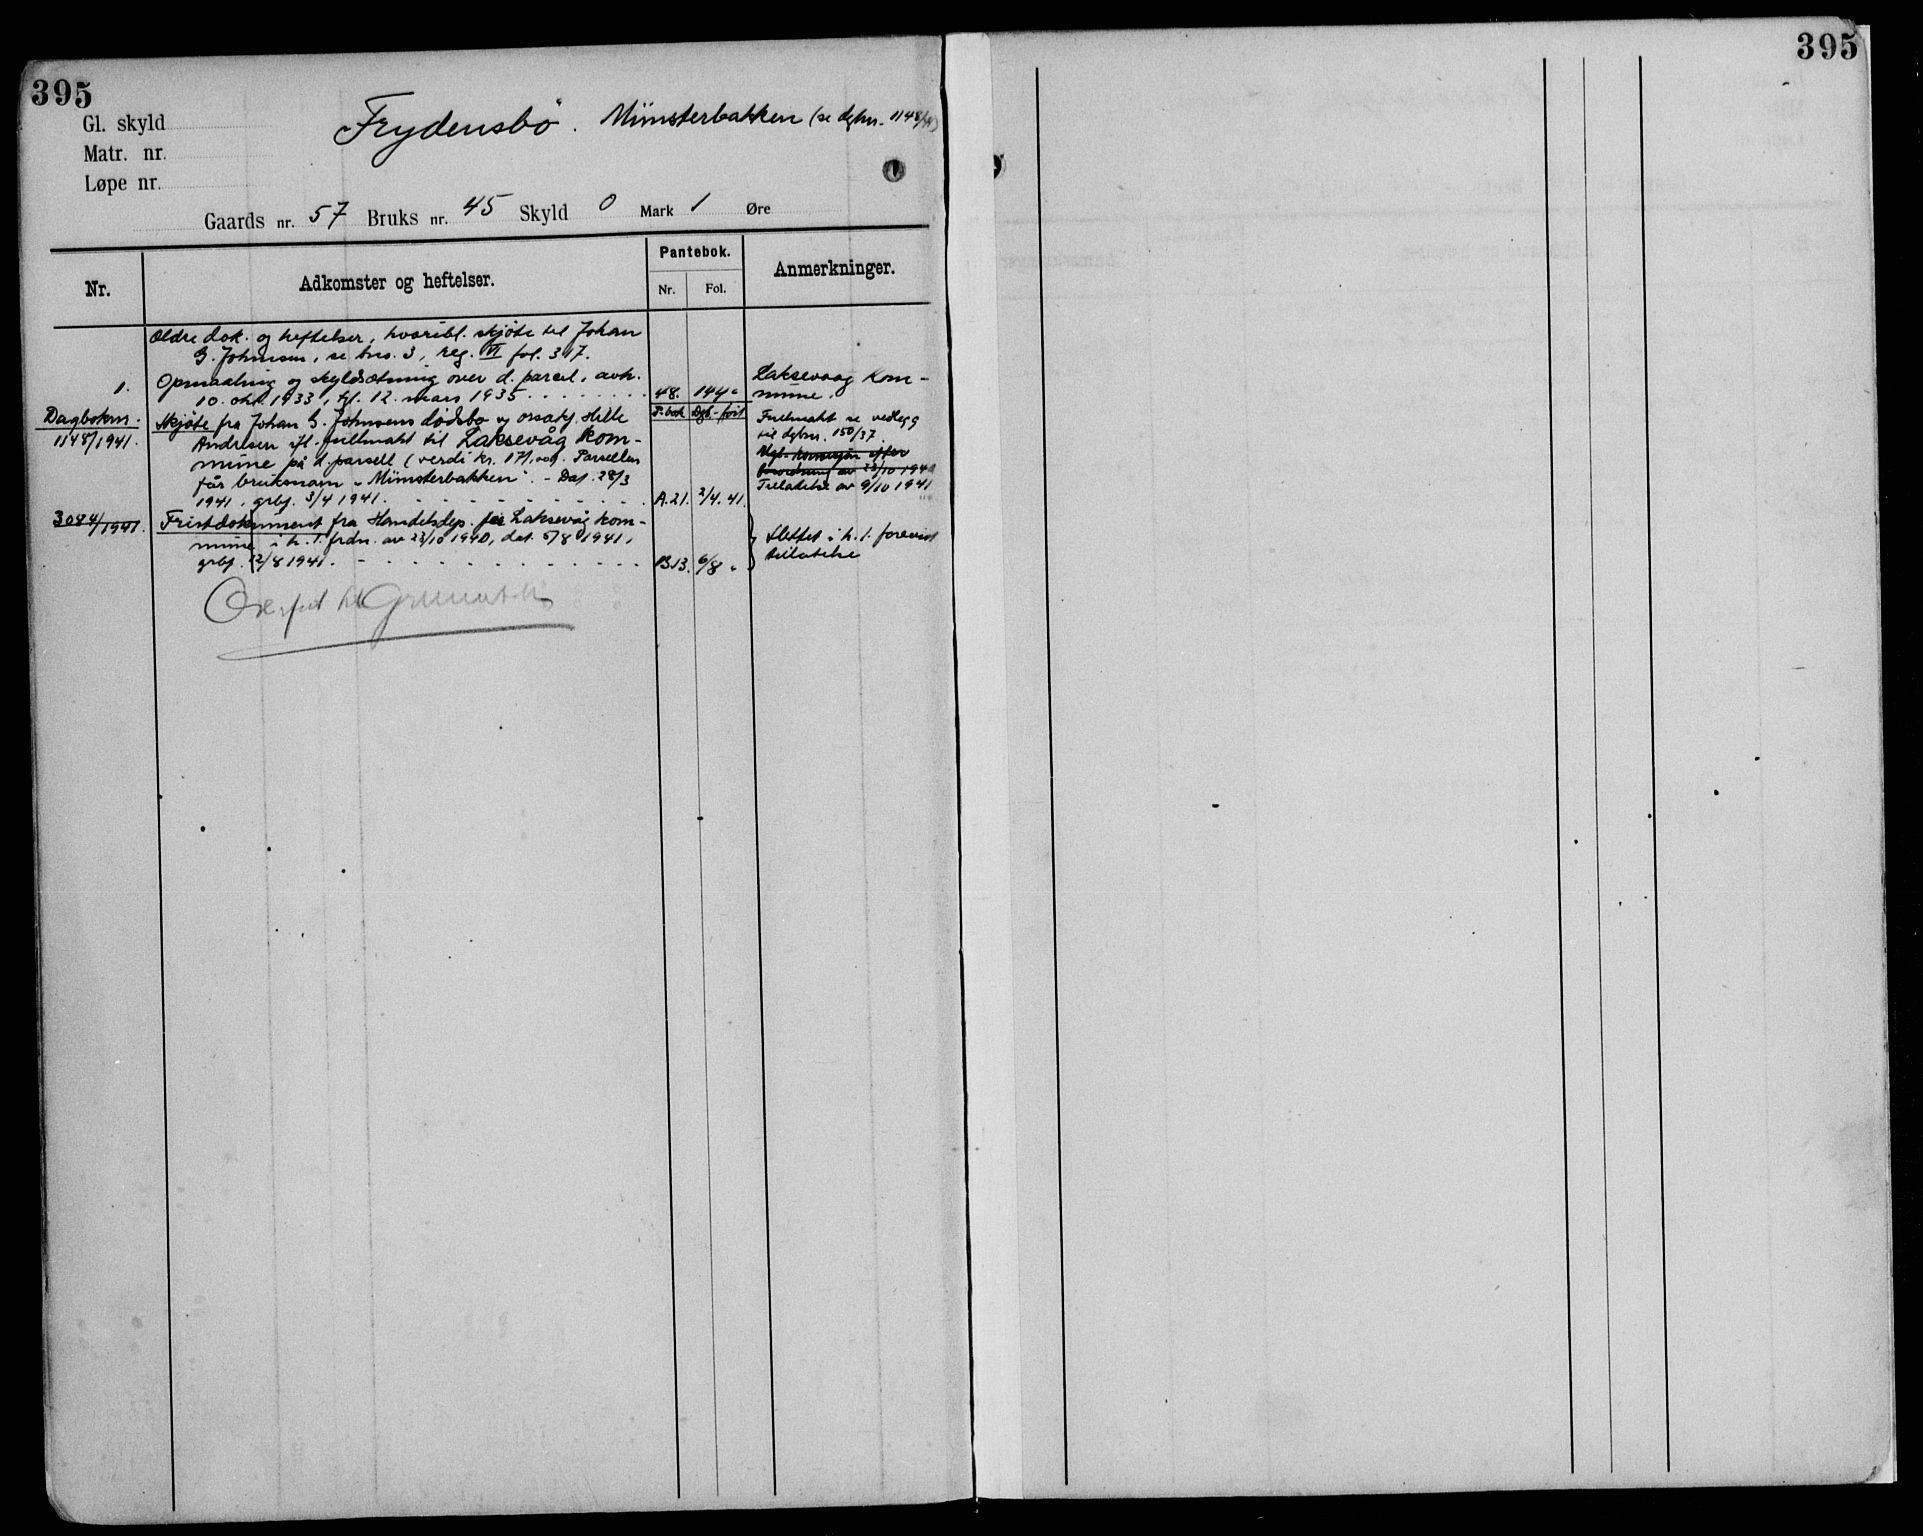 395
395
Gl. skyld
Frydensbø. Münsterbakken (se dgbnr. 1148/41)
Matr. nr.
Løpe nr.
Gaards nr. 57 Bruks nr. 45 Skyld 0 Mark 1 Øre
Nr.
Adkomster og heftelser.
Pantebok.
Nr. Fol.
Anmerkninger.
Ældre dok. og heftelser, hvoribl. skjøte til Johan
G. Johnsen, se bno. 3, reg. VI fol. 317.
1. Opmaaling og skyldsætning over d. parcel, avh.
10. okt. 1933, tgl. 12. mars 1935 . . . . . . . 48. 144
Laksevaag Kom-
mune.
Dagboknr.
1148/1941.
P.bok Dgb.-ført
Skjøte fra Johan G. Johnsens dødsbo og Helle
Andresen ifl. fullmakt til Laksevåg kom-
mune på d. parsell (verdi kr. Parsellen
får bruksnavn "Münsterbakken". - Dat. 28/3
1941, grbf. 3/4 1941. . . . . . . . . . A.21. 2/4. 41.
Fullmakt se vedlegg
til dgbnr. 150/37.
Mgl. konsesjon efter
forordning av 23/10 1940
Tillatelse av 9/10 1941
3084/1941.
Fristdokument fra Handelsdep. for Laksevåg kom-
mune i h. t. frdn. av 23/10 1940, dat. 5/8 1941,
grbf. 12/8 1941. - . . . . . . . . . . B13. 6/8 "
Slettet i h. t. forevist
tillatelse
Overført til Grunnbok